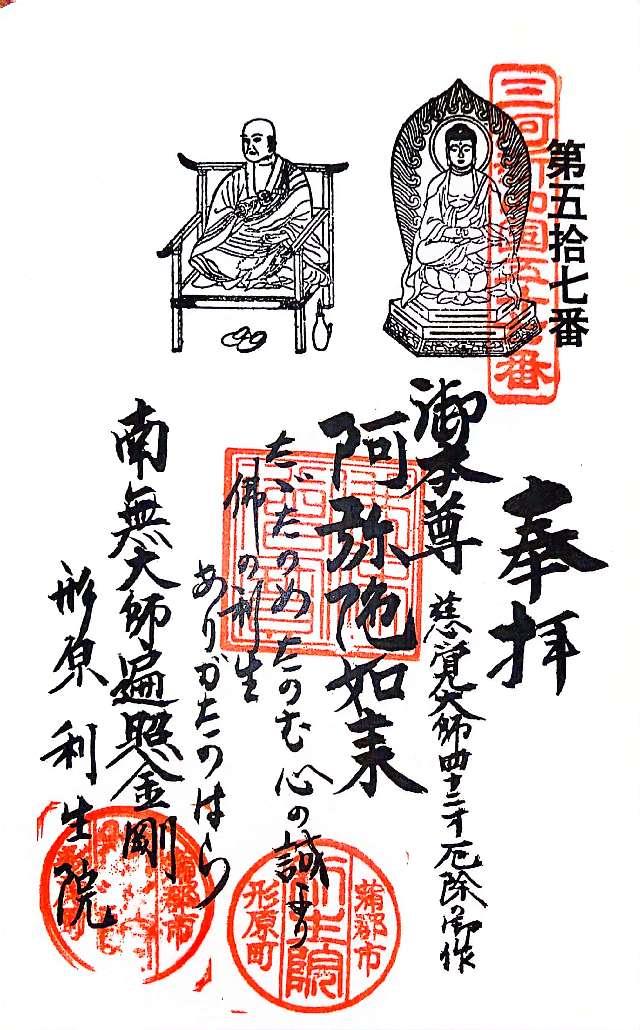 第五拾七番
奉拝
御本尊
慈覚大師四十二才厄除の御作
阿弥陀如来
たゞたのめたのむ心の誠より
佛の利生
ありがたのはら
南無大師遍照金剛
形原利生院
蒲郡市
利生院
形原町
蒲郡市